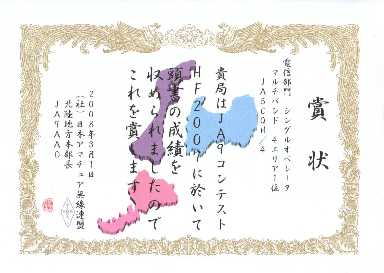 賞状
電信部門 シングルオペレータ
マルチバンド 4エリア1位
貴局はJA9コンテスト
HF2007に於いて
頭書の成績を
収められましたので
これを賞します
2008年3月1日
(社)日本アマチュア無線連盟
北陸地方本部長